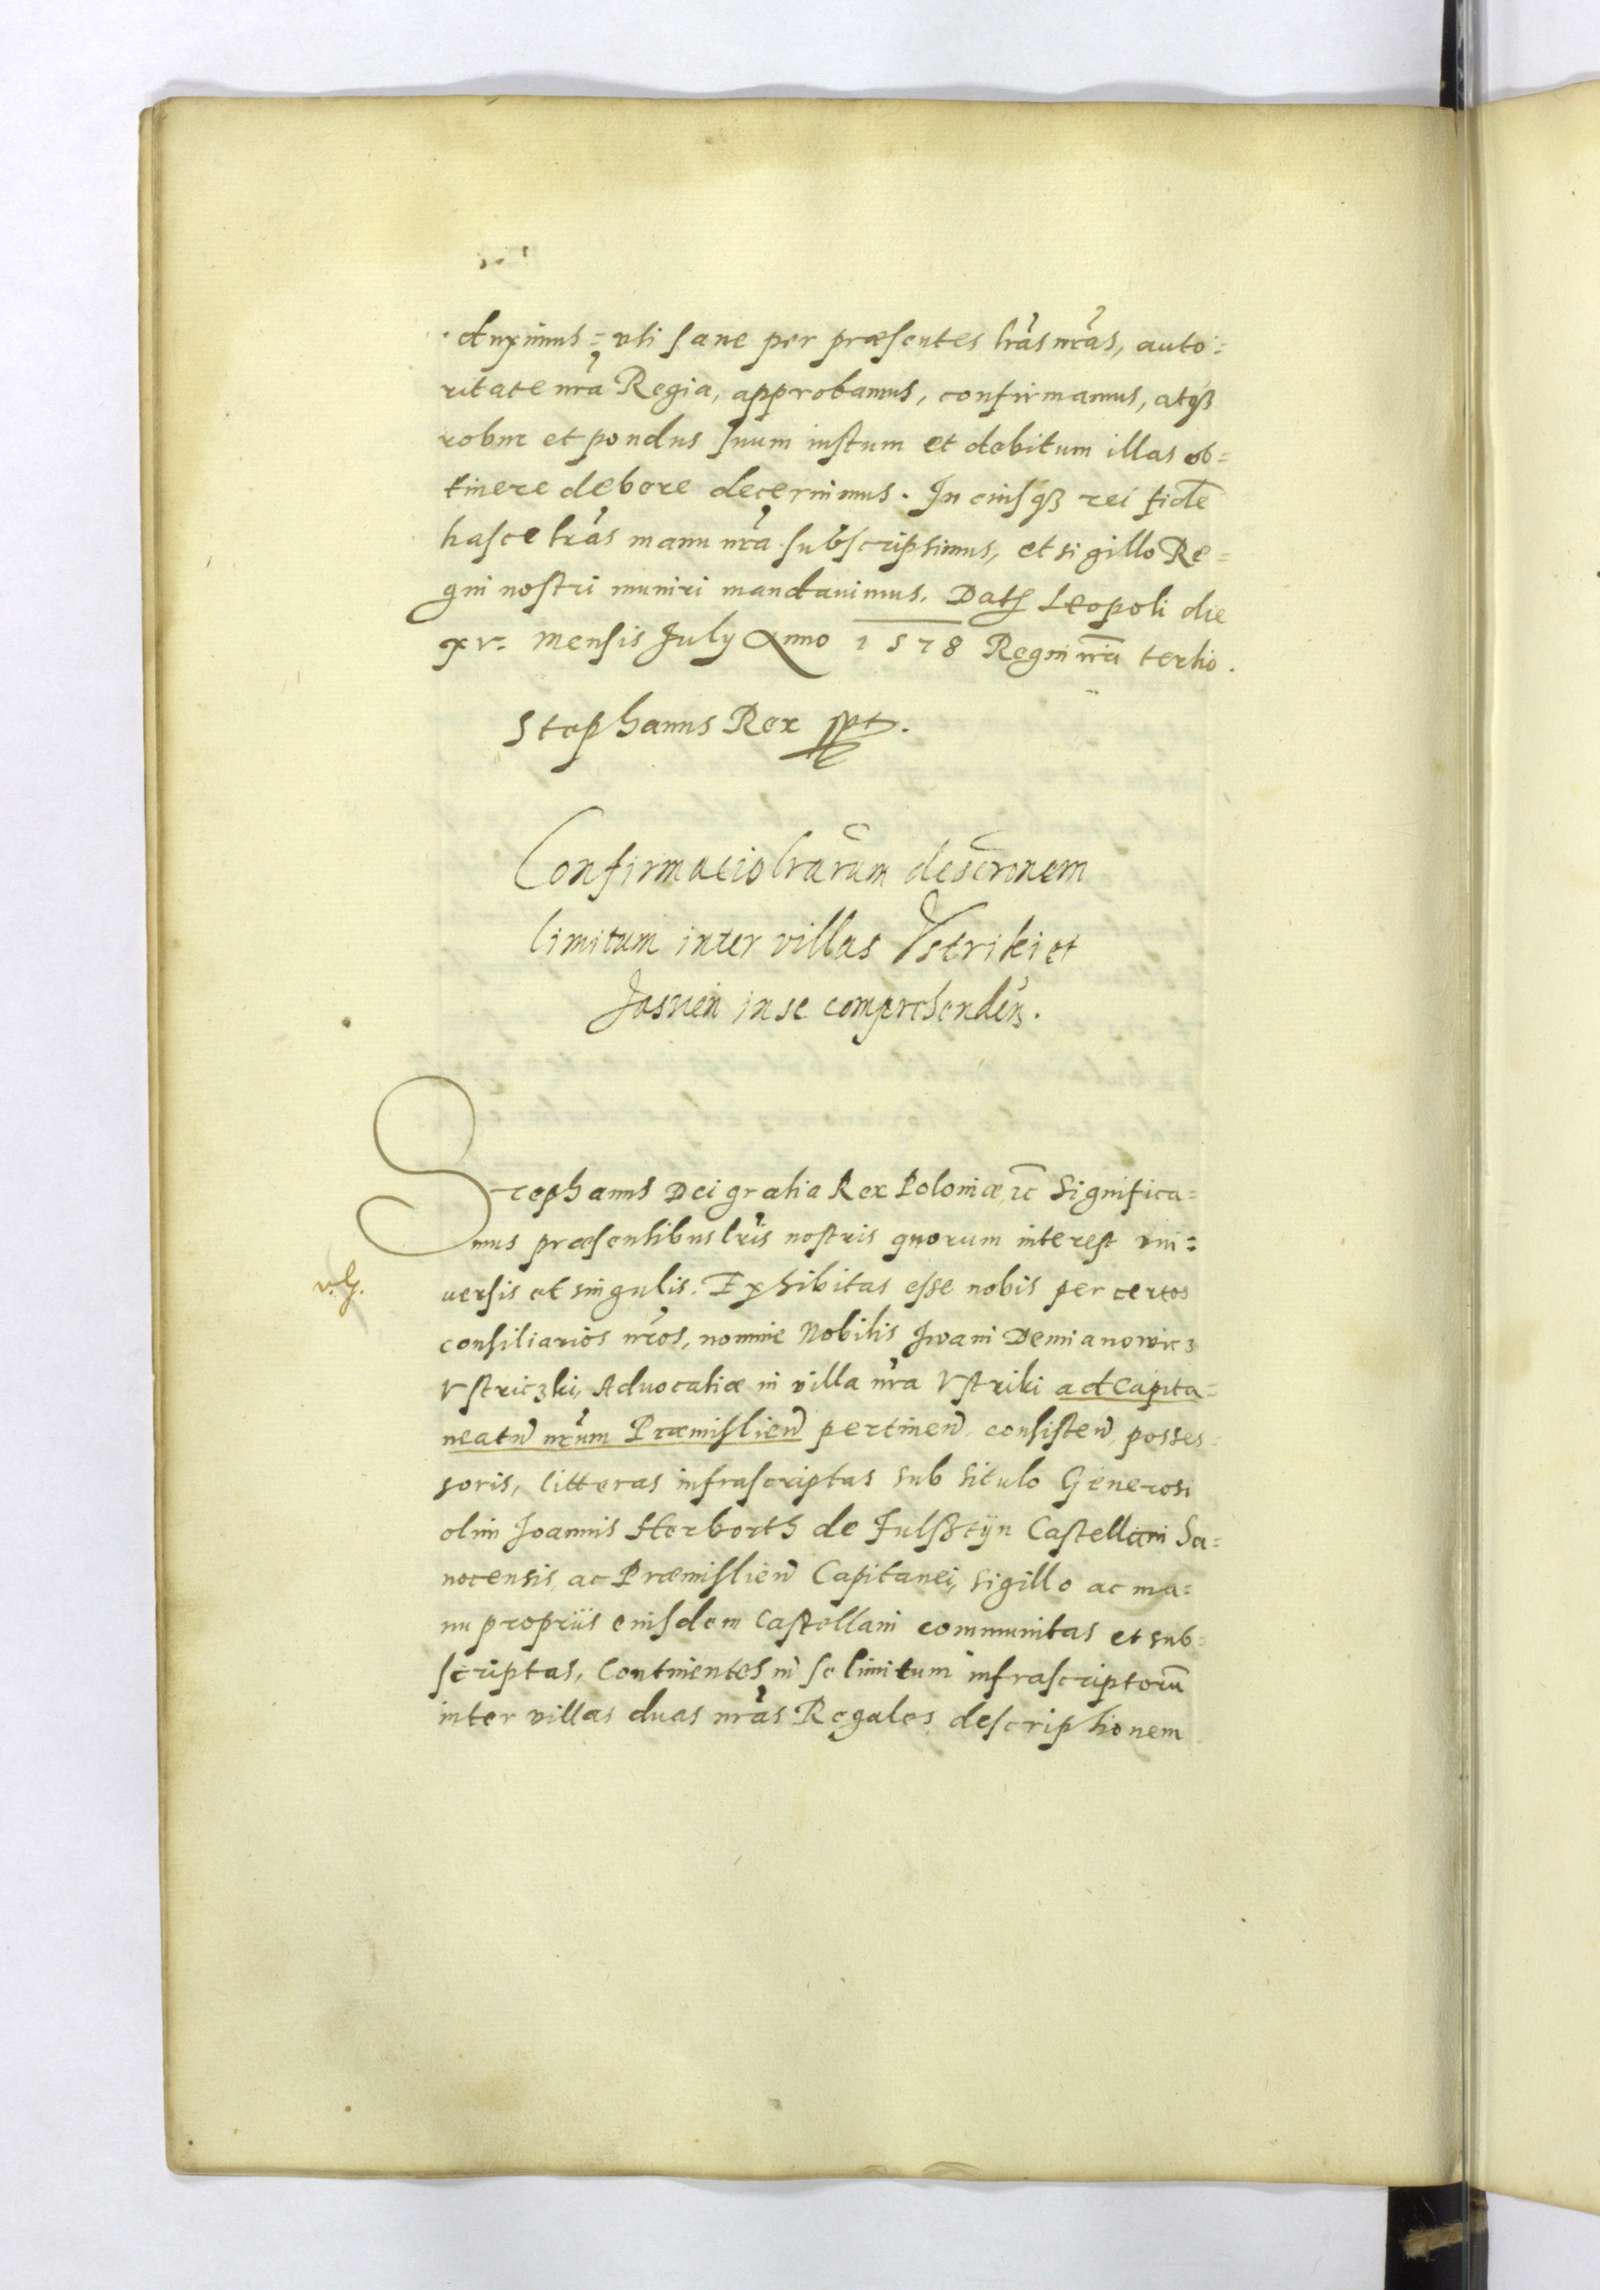 duximus= uti sane per præsentes lr̃as nr̃as, auto=
ritate nr̃a Regia, approbamus, confirmamus, atqꝫ
robur et pondus suum iustum et debitum illas ob=
tinere debere decernimus. In cuiusqꝫ rei fidẽ
hasce lr̃as manu nr̃a subscripsimus, et sigillo Re=
gni nostri muniri mandauimus. Datꝭ Leopoli die
xv. mensis July Anno 1578 Regni nr̃i tertio.
Stephanus Rex sst.
Confirmacio lr̃arum descr̃onem
limitum inter villas Vstriki et
Jasnen in se comprehendeñ.
Stephanus Dei gratia Rex Poloniæ, ꝛc̃ Significa=
mus præsentibus lr̃is nostris quorum interest uni=
uersis et singulis. Exhibitas esse nobis per certos
v. G.
consiliarios nr̃os, nomine Nobilis Iwani Demianowicz
Vstriczki, Aduocatiæ in villa nr̃a Vstriki ad Capita=
neatũ nr̃um Præmislieñ pertineñ consisteñ, posses=
soris, litteras infrascriptas sub titulo Generosi
olim Joannis Herborth de Fulsztijn Castellani Sa=
nocensis ac Præmislieñ Capitanei, sigillo ac ma=
nu propriis eiusdem Castellani communitas et sub=
scriptas, Continentes in se limitum infrascriptorũ
inter villas duas nr̃as Regales descriptionem